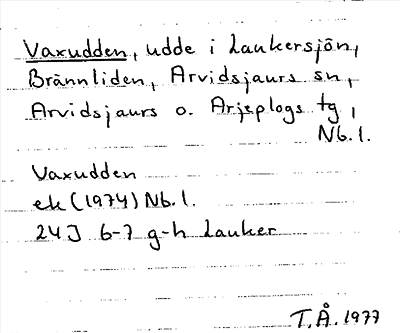 Vaxudden, udde i Laukersjön,
Brännliden, Arvidsjaurs sn,
Arvidsjaurs o. Arjeplogs tg,
Nb.l.
Vaxudden
ek (1974) Nb.l.
24J 6-7 g-h Lauker
T.Å. 1977